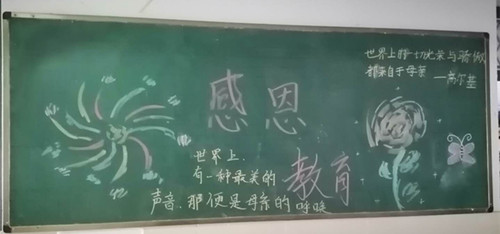 感恩
教育
世界上的一切光荣与骄傲
都来自于母亲
——高尔基
世界上
有一种最美的
声音，那便是母亲的呼唤